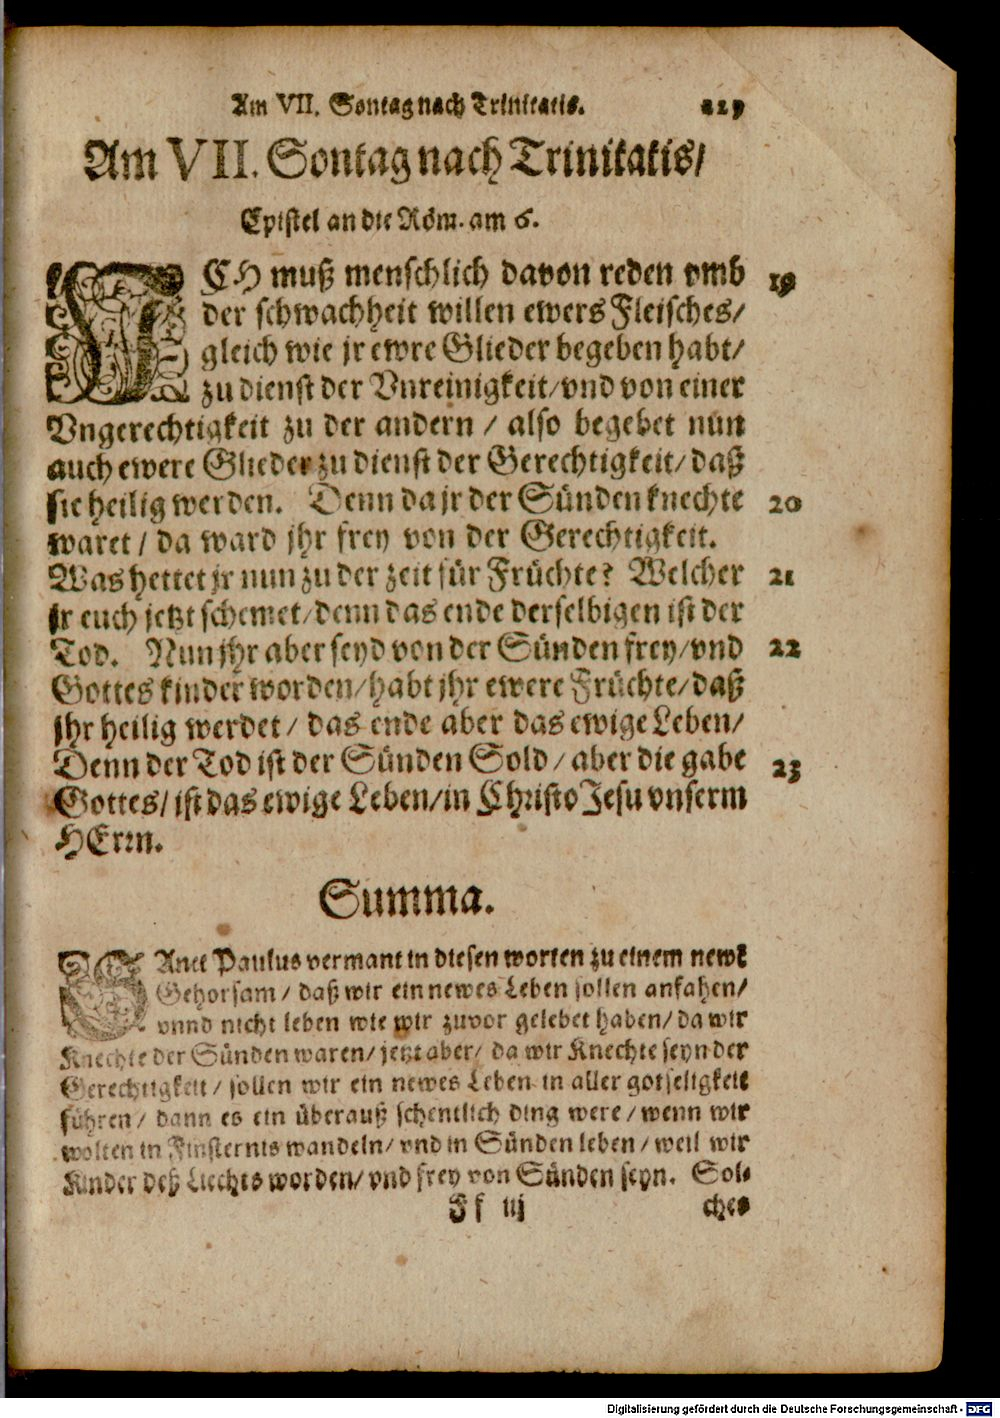 Am VII. Sontag nach Trinitatis. 229
Am VII. Sontag nach Trinitatis/
Epistel an die Röm. am 6.
ICH muß menschlich davon reden vmb 19
der schwachheit willen ewers Fleisches/
gleich wie jr ewre Glieder begeben habt/
zu dienst der Vnreinigkeit/vnd von einer
Vngerechtigkeit zu der andern / also begebet nun
auch ewere Glieder zu dienst der Gerechtigkeit/ daß
sie heilig werden. Denn da jr der Sünden knechte 20
waret / da ward jhr frey von der Gerechtigkeit.
Was hettet jr nun zu der zeit für Früchte? Welcher 21
jr euch jetzt schemet/denn das ende derselbigen ist der
Tod. Nun jhr aber seyd von der Sünden frey/vnd 22
Gottes kinder worden/habt jhr ewere Früchte/daß
jhr heilig werdet / das ende aber das ewige Leben/
Denn der Tod ist der Sünden Sold / aber die gabe 23
Gottes/ ist das ewige Leben/in Christo Jesu vnserm
HErrn.
Summa.
SAnct Paulus vermant in diesen worten zu einem newẽ
Gehorsam / daß wir ein newes Leben sollen anfahen/
vnnd nicht leben wie wir zuvor gelebet haben/ da wir
Knechte der Sünden waren/ jetzt aber/ da wir Knechte seyn der
Gerechtigkeit / sollen wir ein newes Leben in aller gotseligkeit
führen / dann es ein überauß schentlich ding were / wenn wir
wolten in Finsternis wandeln/ vnd in Sünden leben / weil wir
Kinder deß Liechts worden/ vnd frey von Sünden seyn. Sol-
Ff iij ches
Digitalisierung gefördert durch die Deutsche Forschungsgemeinschaft - DFG